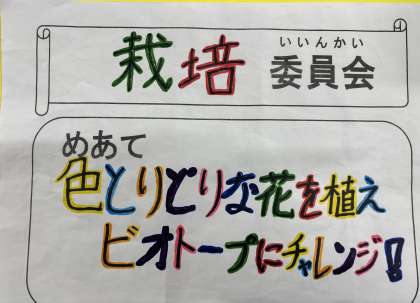 いいんかい
栽培 委員会
めあて
色とりどりな花を植え
ビオトープにチャレンジ!!